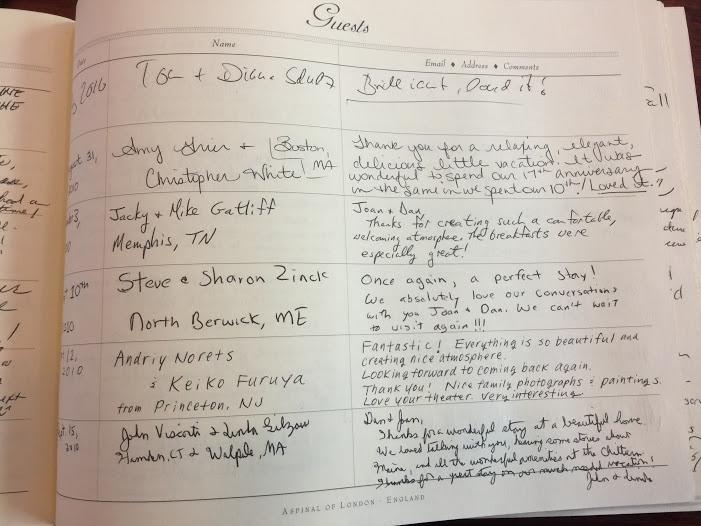 Guests
Name
Email ♦ Address ♦ Comments
2010
Tom + Diane
Brilliant, Loved it!
all
31,
2010
Amy + Boston,
Christopher White MA
Thank you for a relaxing, elegant,
delicious little vacation. It was
wonderful to spend our 17th anniversary
in the same inn we spent our 10th! Loved it.
Jacky + Mike Gatliff
Memphis, TN
Joan & Dan,
Thanks for creating such a comfortable,
welcoming atmosphere. The breakfasts were
especially great!
10th
2010
Steve & Sharon Zinck
North Berwick, ME
Once again, a perfect stay!
We absolutely love our conversations
with you Joan & Dan. We can't wait
to visit again !!!
12,
2010
Andriy Norets
& Keiko Furuya
from Princeton, NJ
Fantastic! Everything is so beautiful and
creating nice atmosphere.
Looking forward to coming back again.
Thank you! Nice family photographs & paintings.
Love your theater. Very interesting
15,
2010
John Visconti & Linda
Hamden, CT & Walpole, MA
Dan & Joan,
Thanks for a wonderful stay at a beautiful home
We loved talking with you, hearing some stories about
Maine, and all the wonderful amenities at the Chiltern
Thanks for a great stay on our much needed vacation!
John & Linda
ASPINAL OF LONDON · ENGLAND